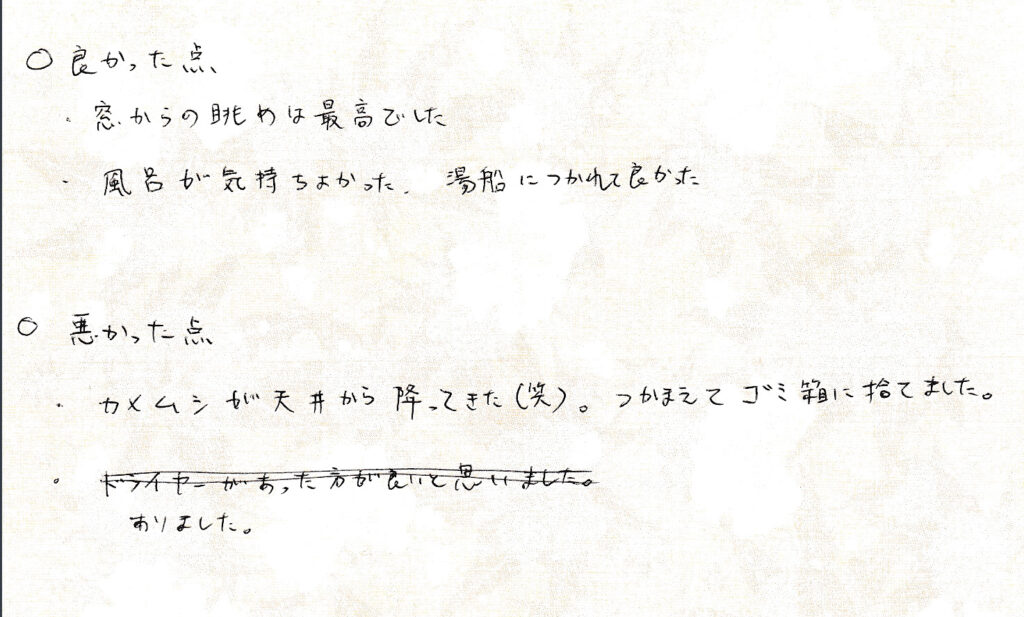 ○ 良かった点
・ 窓からの眺めは最高でした
・ 風呂が気持ちよかった. 湯船につかれて良かった
○ 悪かった点
・ カメムシが天井から降ってきた(笑)。つかまえてゴミ箱に捨てました。
・ ドライヤーがあった方が良いと思いました。
ありました。